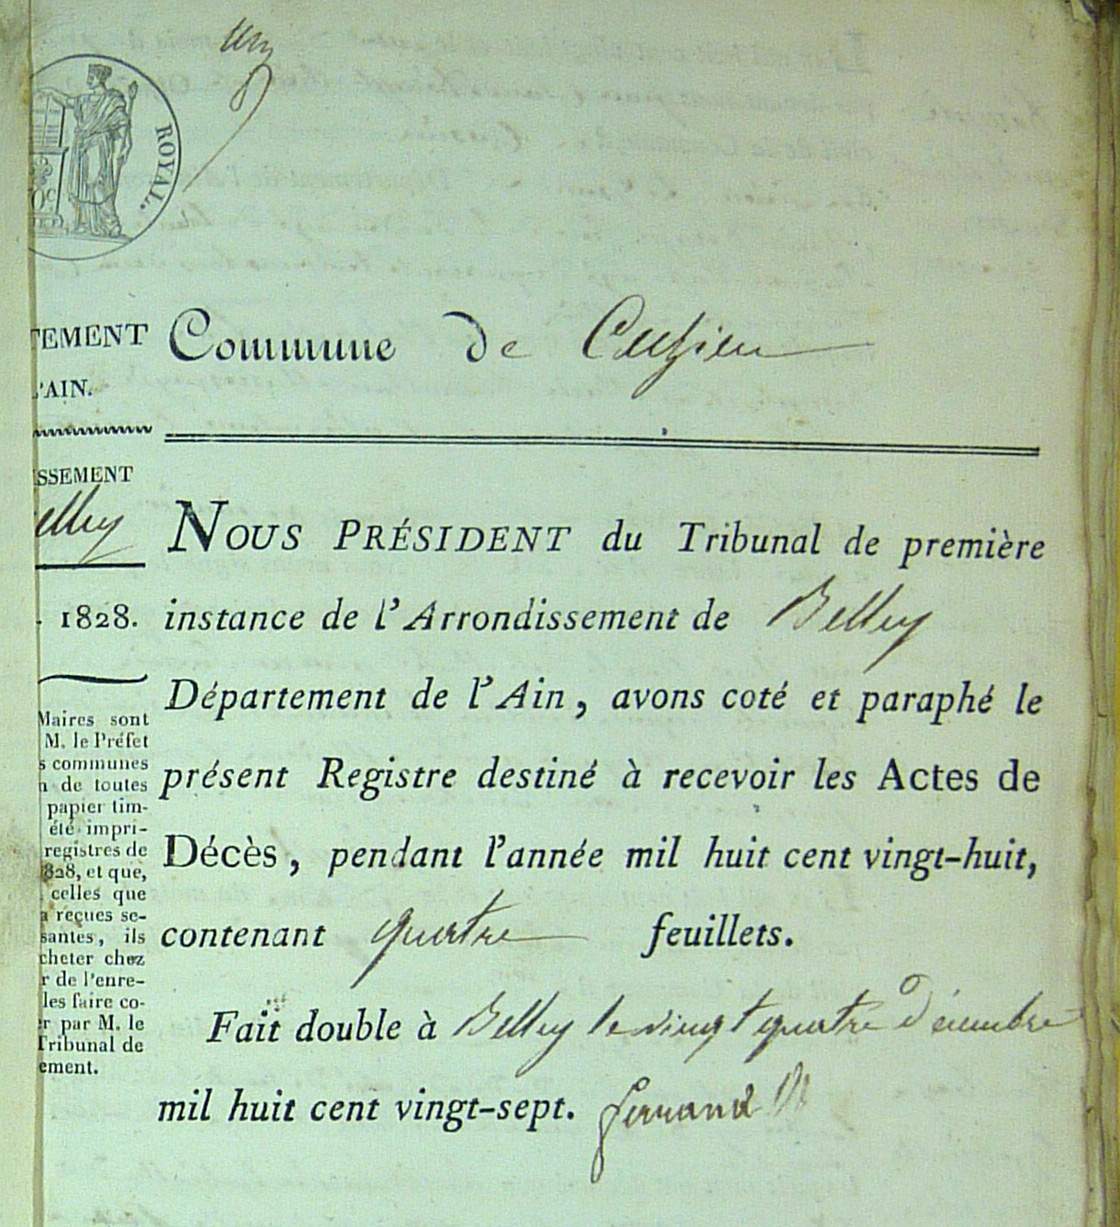 un
ROYAL.
TEMENT
L'AIN.
SSEMENT
elley
1828.
Maires sont
M. le Préfet
s communes
n de toutes
papier tim-
été impri-
registres de
1828, et que,
celles que
a reçues se-
santes, ils
cheter chez
r de l'enre-
les faire co-
er par M. le
Tribunal de
ement.
Commune de Cuzieu
NOUS PRÉSIDENT du Tribunal de première
instance de l'Arrondissement de Belley
Département de l'Ain, avons coté et paraphé le
présent Registre destiné à recevoir les Actes de
Décès, pendant l'année mil huit cent vingt-huit,
contenant quatre feuillets.
Fait double à Belley le vingt quatre Décembre
mil huit cent vingt-sept.